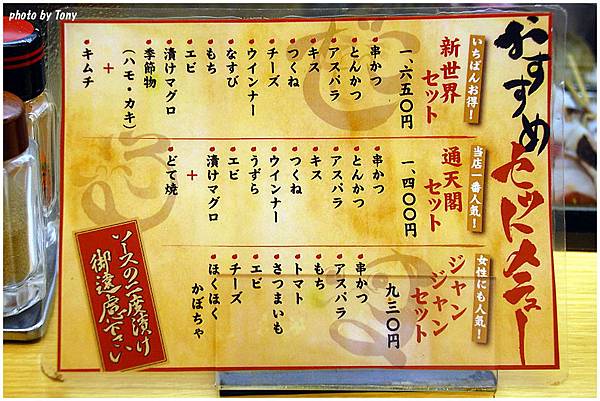 photo by Tony
おすすめ
セットメニュー
いちばんお得！
新世界
セット
一、六五〇円
串かつ
とんかつ
アスパラ
キス
つくね
チーズ
ウインナー
なすび
もち
エビ
漬けマグロ
季節物
（ハモ・カキ）
＋
キムチ
当店一番人気！
通天閣
セット
一、四〇〇円
串かつ
とんかつ
アスパラ
キス
つくね
ウインナー
うずら
エビ
漬けマグロ
＋
どて焼
女性にも人気！
ジャン
ジャン
セット
九三〇円
串かつ
アスパラ
もち
トマト
さつまいも
エビ
チーズ
ほくほく
かぼちゃ
ソースの二度漬け
御遠慮下さい